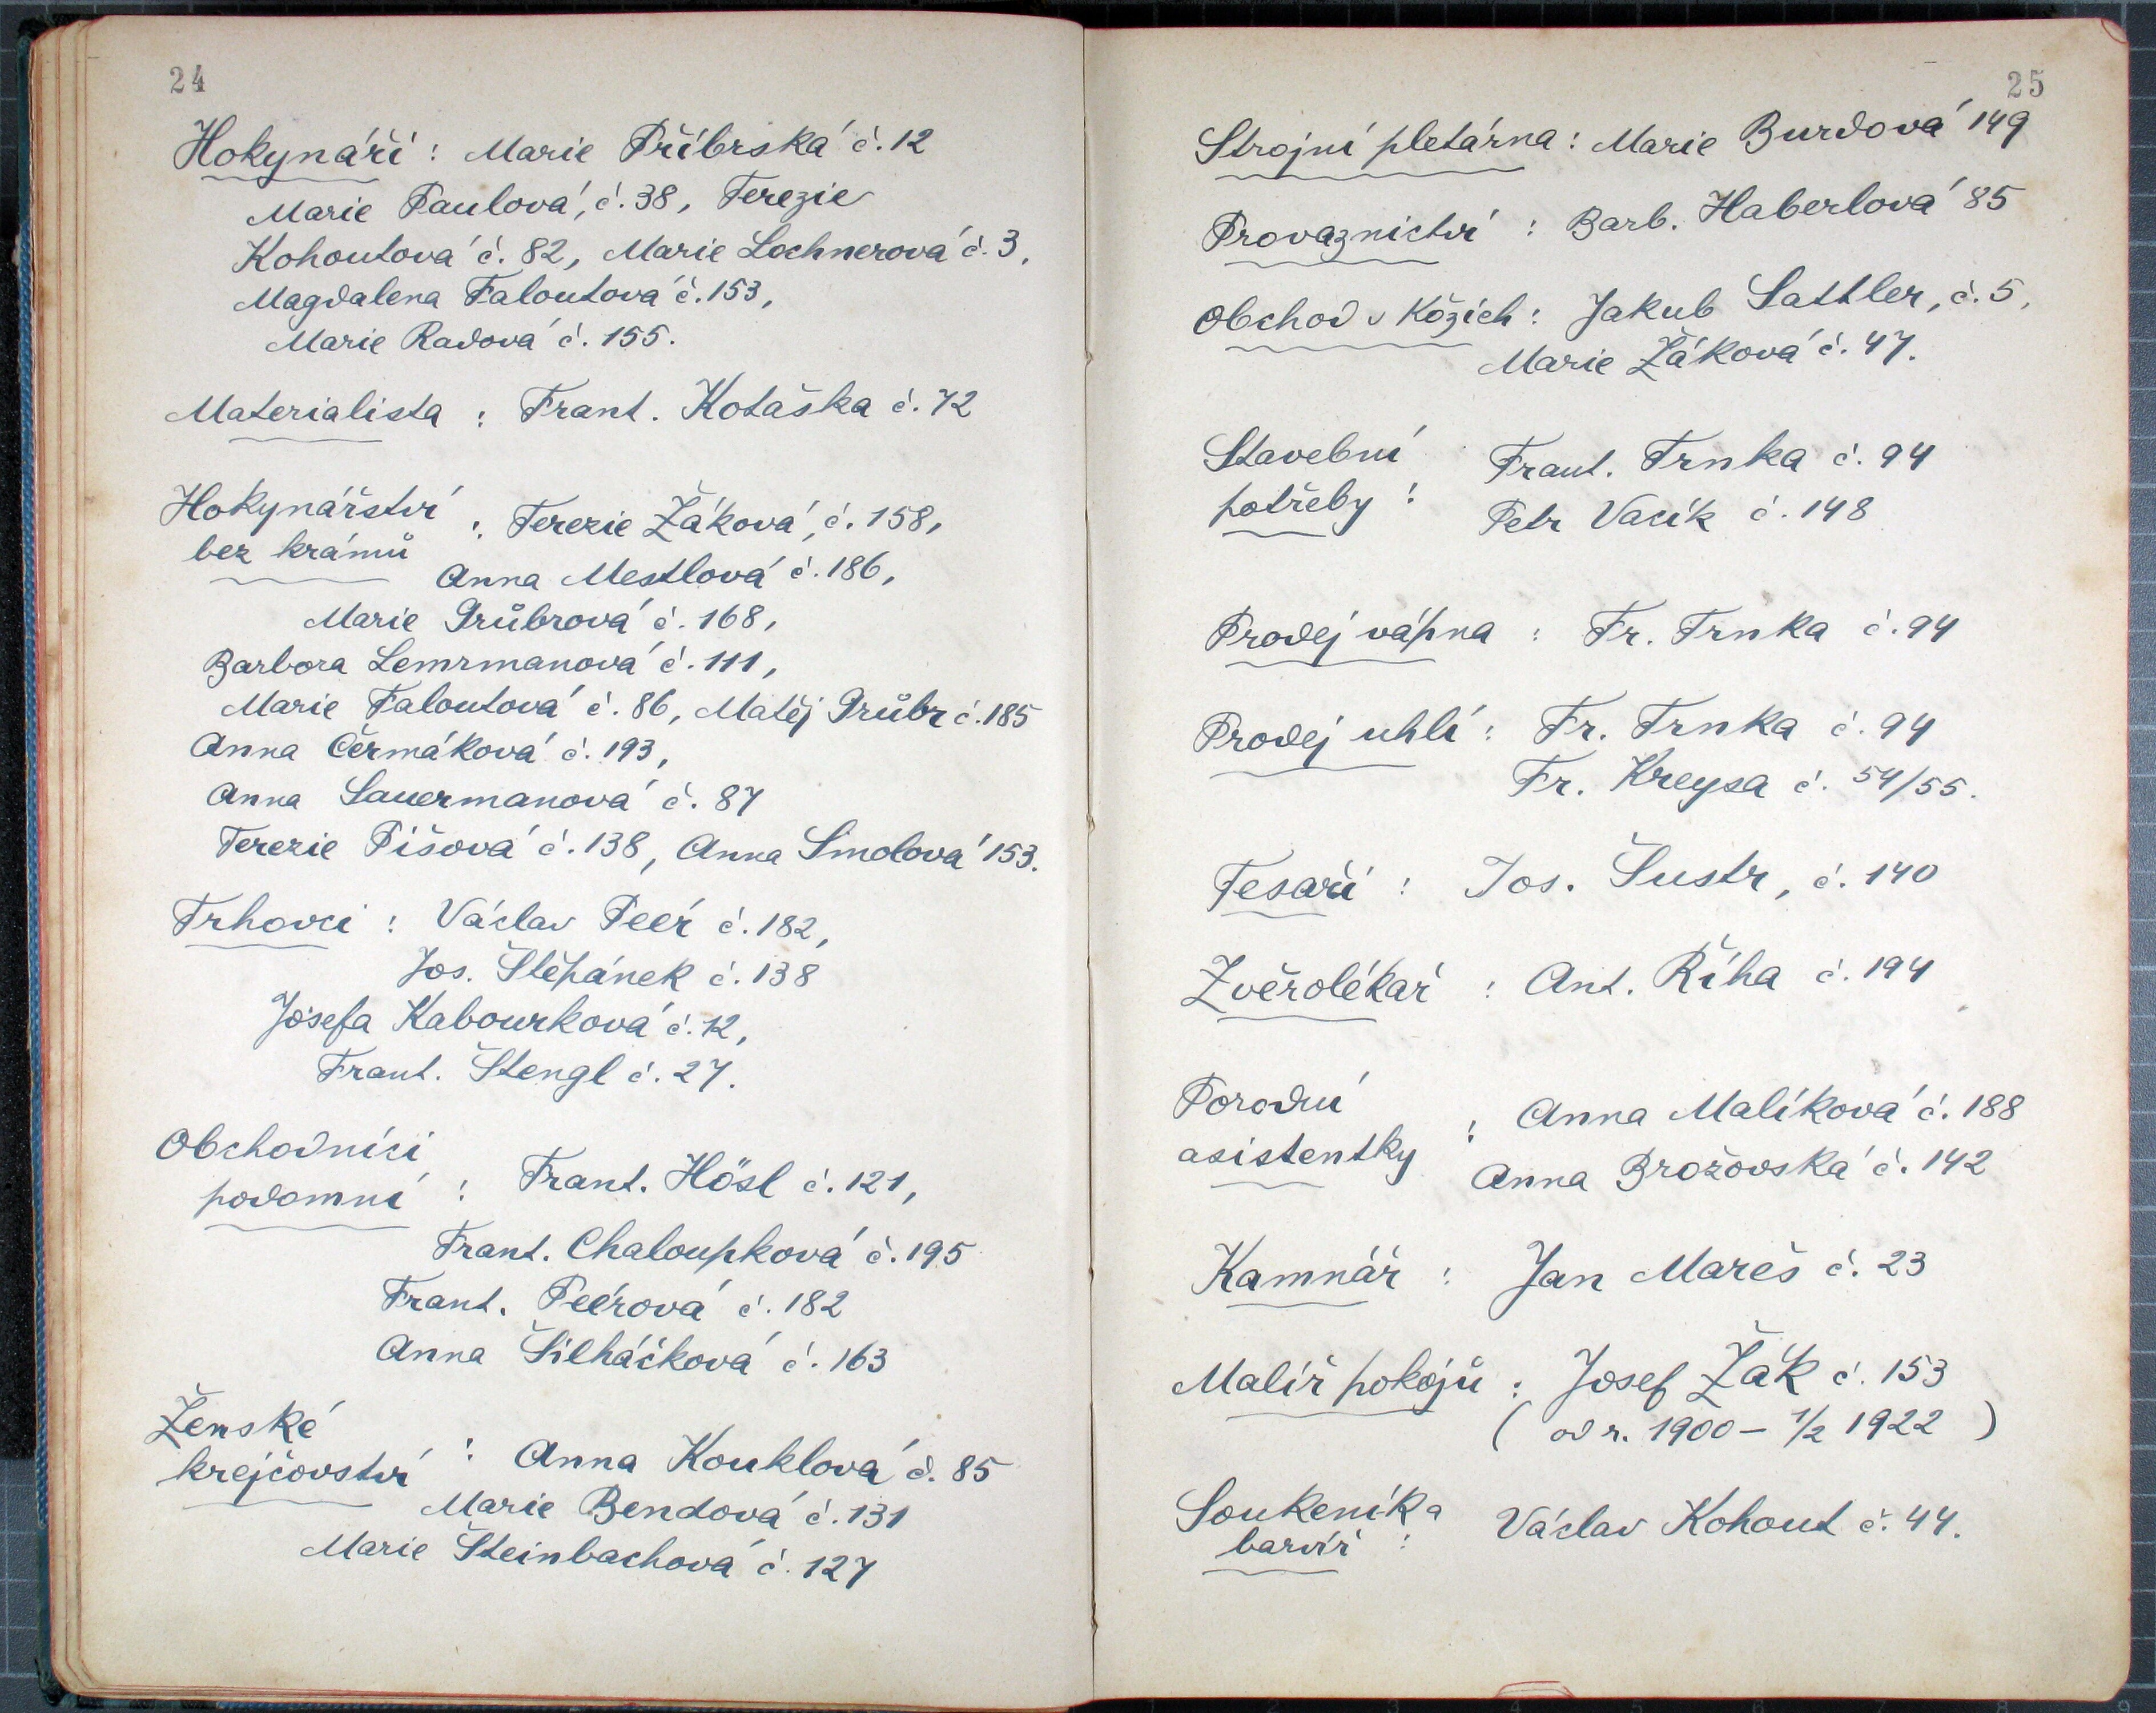 24
Hokynáři : Marie Příbrská č. 12
Marie Paulová, č. 38, Terezie
Kohoutová č. 82, Marie Lochnerová č. 3,
Magdalena Faloutová č. 153,
Marie Radová č. 155.
Materialista : Frant. Kotaška č. 72
Hokynářství
bez krámů : Terezie Žáková, č. 158,
Anna Mestlová č. 186,
Marie Grůbrová č. 168,
Barbora Lemrmanová č. 111,
Marie Faloutová č. 86, Matěj Grůbr č. 185
Anna Čermáková č. 193,
Anna Sauermanová č. 87
Terezie Píšová č. 138, Anna Smolová 153.
Trhovci : Václav Peér č. 182,
Jos. Štěpánek č. 138
Josefa Kabourková č. 12,
Frant. Štengl č. 27.
Obchodníci
podomní : Frant. Hösl č. 121,
Frant. Chaloupková č. 195
Frant. Peérová č. 182
Anna Šilháčková č. 163
Ženské
krejčovství : Anna Kouklová č. 85
Marie Bendová č. 131
Marie Šteinbachová č. 127
25
Strojní pletárna : Marie Burdová 149
Provaznictví : Barb. Haberlová 85
Obchod v kózích : Jakub Sattler, č. 5,
Marie Žáková č. 47.
Stavební Frant. Trnka č. 94
potřeby : Petr Vacík č. 148
Prodej vápna : Fr. Trnka č. 94
Prodej uhlí : Fr. Trnka č. 94
Fr. Kreysa č. 54/55.
Tesaři : Jos. Šustr, č. 140
Zvěrolékař : Ant. Říha č. 194
Porodní
asistentky : Anna Malíková č. 188
Anna Brožovská č. 142
Kamnář : Jan Mareš č. 23
Malíř pokojů : Josef Žák č. 153
( od r. 1900 – 1/2 1922 )
Soukeník a
barvíř : Václav Kohout č. 44.